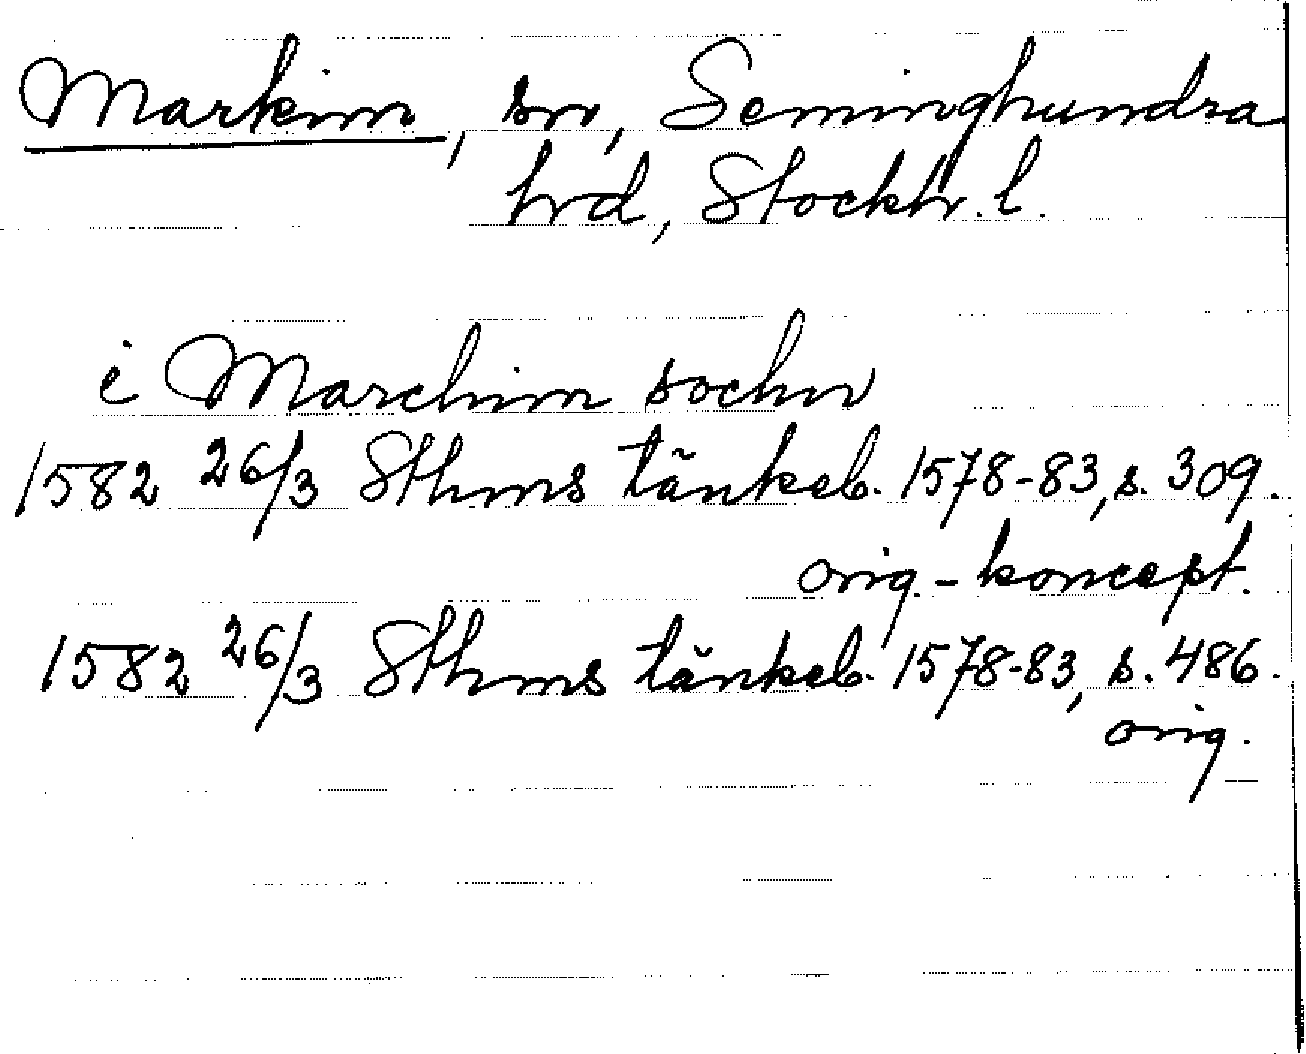 Markim, sn, Seminghundra
hrd, Stockh. l.
i Marchim sochn
1582 26/3 Sthms tänkeb. 1578-83, s. 309.
orig.-koncept.
1582 26/3 Sthms tänkeb. 1578-83, s. 486.
orig.